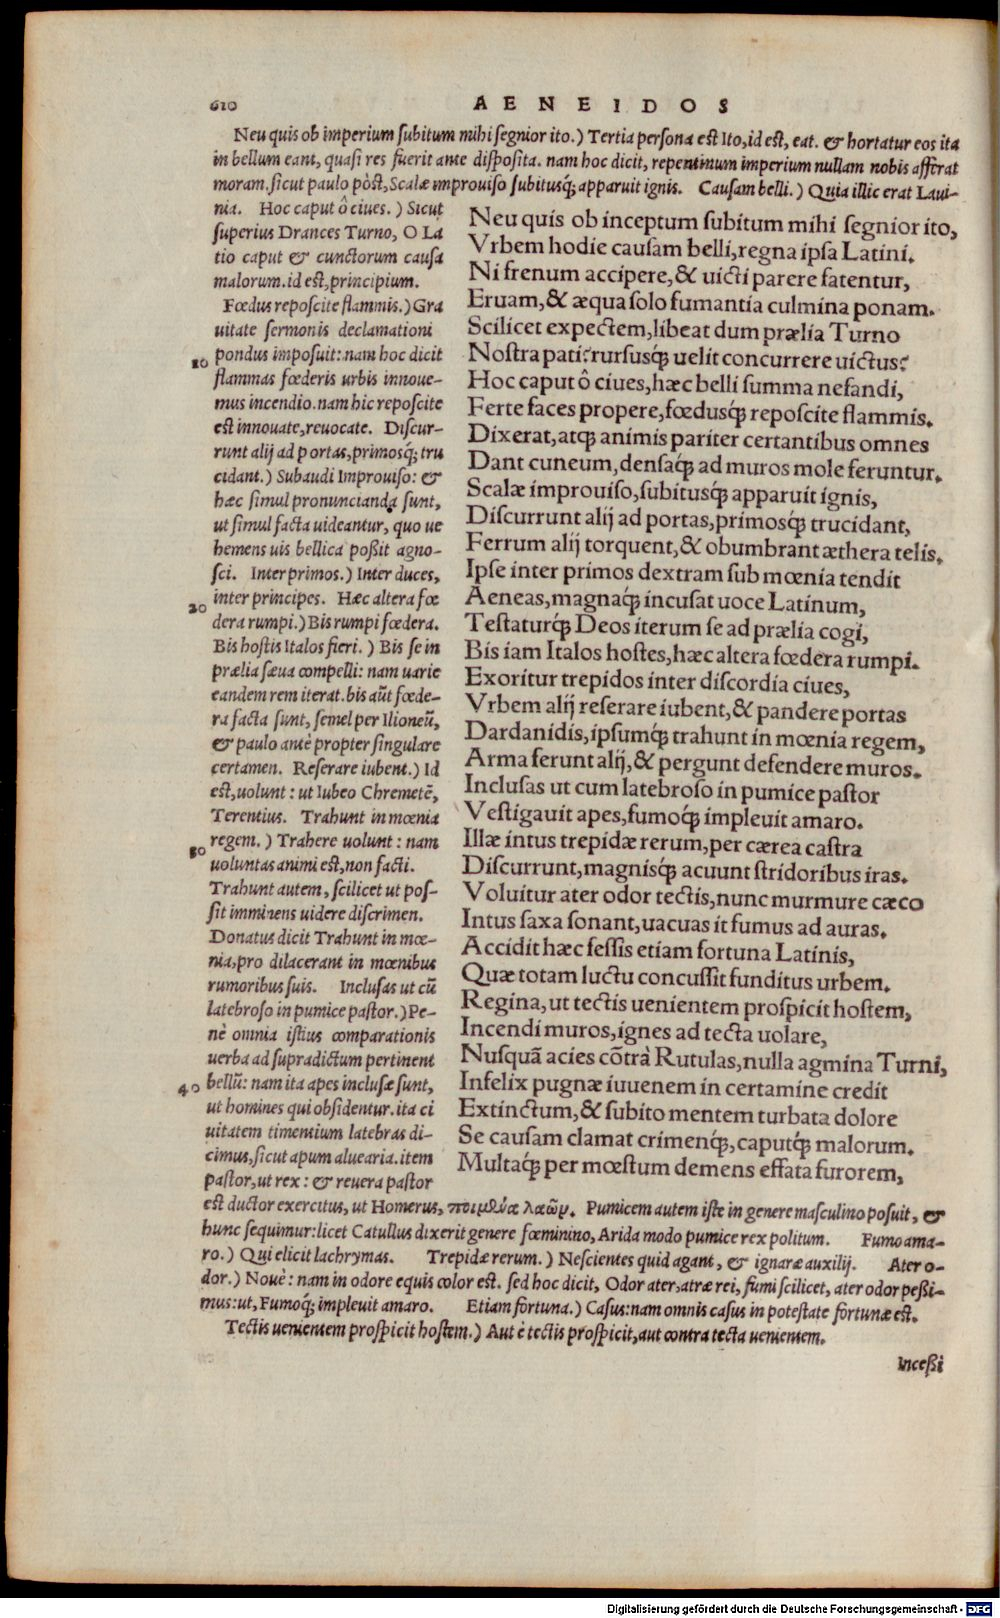 610
AENEIDOS
Neu quis ob imperium subitum mihi segnior ito.) Tertia persona est Ito, id est, eat. & hortatur eos ita
in bellum eant, quasi res fuerit ante disposita. nam hoc dicit, repentinum imperium nullam nobis afferat
moram. sicut paulo pòst, Scalæ improuiso subitusq́; apparuit ignis. Causam belli.) Quia illic erat Laui-
nia. Hoc caput ô ciues.) Sicut
superius Drances Turno, O La
tio caput & cunctorum causa
malorum. id est, principium.
Fœdus reposcite flammis.) Gra
uitate sermonis declamationi
10
pondus imposuit: nam hoc dicit
flammas fœderis urbis innoue-
mus incendio. nam hic reposcite
est innouate, reuocate. Discur-
runt alij ad portas, primosq́; tru
cidant.) Subaudi Improuiso: &
hæc simul pronuncianda sunt,
ut simul facta uideantur, quo ue
hemens uis bellica poßit agno-
sci. Inter primos.) Inter duces,
20
inter principes. Hæc altera fœ
dera rumpi.) Bis rumpi fœdera.
Bis hostis Italos fieri.) Bis se in
prælia sæua compelli: nam uarie
eandem rem iterat. bis aũt fœde-
ra facta sunt, semel per Ilioneũ,
& paulo antè propter singulare
certamen. Reserare iubent.) Id
est, uolunt: ut Iubeo Chremetẽ,
Terentius. Trahunt in mœnia
30
regem.) Trahere uolunt: nam
uoluntas animi est, non facti.
Trahunt autem, scilicet ut pos-
sit imminens uidere discrimen.
Donatus dicit Trahunt in mœ-
nia, pro dilacerant in mœnibus
rumoribus suis. Inclusas ut cũ
latebroso in pumice pastor.) Pe-
nè omnia istius comparationis
uerba ad supradictum pertinent
40
bellũ: nam ita apes inclusæ sunt,
ut homines qui obsidentur. ita ci
uitatem timentium latebras di-
cimus, sicut apum aluearia. item
pastor, ut rex: & reuera pastor
Neu quis ob inceptum subitum mihi segnior ito,
Vrbem hodie causam belli, regna ipsa Latini.
Ni frenum accipere, & uicti parere fatentur,
Eruam, & æqua solo fumantia culmina ponam.
Scilicet expectem, libeat dum prælia Turno
Nostra pati? rursusq́; uelit concurrere uictus?
Hoc caput ô ciues, hæc belli summa nefandi,
Ferte faces propere, fœdusq́; reposcite flammis.
Dixerat, atq; animis pariter certantibus omnes
Dant cuneum, densaq́; ad muros mole feruntur.
Scalæ improuiso, subitusq́; apparuit ignis,
Discurrunt alij ad portas, primosq́; trucidant,
Ferrum alij torquent, & obumbrant æthera telis.
Ipse inter primos dextram sub mœnia tendit
Aeneas, magnaq́; incusat uoce Latinum,
Testaturq́; Deos iterum se ad prælia cogi,
Bis iam Italos hostes, hæc altera fœdera rumpi.
Exoritur trepidos inter discordia ciues,
Vrbem alij reserare iubent, & pandere portas
Dardanidis, ipsumq́; trahunt in mœnia regem,
Arma ferunt alij, & pergunt defendere muros.
Inclusas ut cum latebroso in pumice pastor
Vestigauit apes, fumoq́; impleuit amaro.
Illæ intus trepidæ rerum, per cærea castra
Discurrunt, magnisq́; acuunt stridoribus iras.
Voluitur ater odor tectis, nunc murmure cæco
Intus saxa sonant, uacuas it fumus ad auras.
Accidit hæc fessis etiam fortuna Latinis,
Quæ totam luctu concussit funditus urbem.
Regina, ut tectis uenientem prospicit hostem,
Incendi muros, ignes ad tecta uolare,
Nusquã acies cõtrà Rutulas, nulla agmina Turni,
Infelix pugnæ iuuenem in certamine credit
Extinctum, & subito mentem turbata dolore
Se causam clamat crimenq́;, caputq́; malorum.
Multaq́; per mœstum demens effata furorem,
est ductor exercitus, ut Homerus, ποιμθύα λαῶρ. Pumicem autem iste in genere masculino posuit, &
hunc sequimur: licet Catullus dixerit genere fœminino, Arida modo pumice rex politum. Fumo ama-
ro.) Qui elicit lachrymas. Trepidæ rerum.) Nescientes quid agant, & ignaræ auxilij. Ater o-
dor.) Nouè: nam in odore equis color est. sed hoc dicit, Odor ater, atræ rei, fumi scilicet, ater odor peßi-
mus: ut, Fumoq́; impleuit amaro. Etiam fortuna.) Casus: nam omnis casus in potestate fortunæ est.
Tectis uenientem prospicit hostem.) Aut è tectis prospicit, aut contra tecta uenientem.
Inceßi
Digitalisierung gefördert durch die Deutsche Forschungsgemeinschaft - DFG